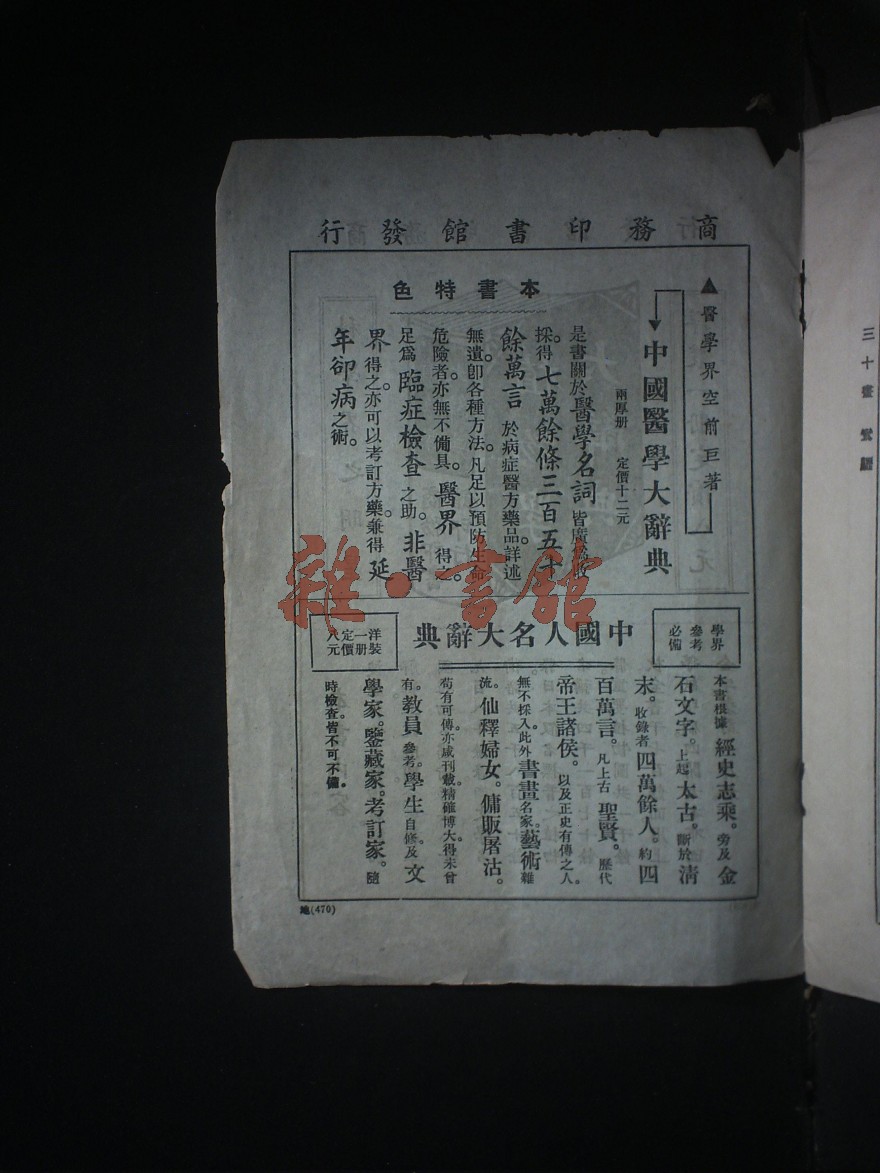 商務印書館發行
▲醫學界空前巨著
中國醫學大辭典
兩厚册 定價十二元
本書特色
是書關於醫學名詞皆廣爲收
採得七萬餘條三百五十
餘萬言於病症醫方藥品。詳述
無遺。卽各種方法。凡足以預防生命
危險者。亦無不備具。醫界得之。
足爲臨症檢查之助。非醫
界得之。亦可以考訂方藥。兼得延
年卻病之術。
學界
參考
必備
中國人名大辭典
洋裝
一册
定價
八元
本書根據經史志乘。旁及金
石文字。上起太古。斷於清
末。收錄者四萬餘人。約四
百萬言。凡上古聖賢。歷代
帝王諸侯。以及正史有傳之人。
無不採入。此外書畫名家。藝術雜
流。仙釋婦女。傭販屠沽。
苟有可傳。亦咸刊載。精確博大。得未曾
有。教員參考。學生自修。及文
學家。鑒藏家。考訂家。隨
時檢查。皆不可不備。
地(470)
雜·書館
三十